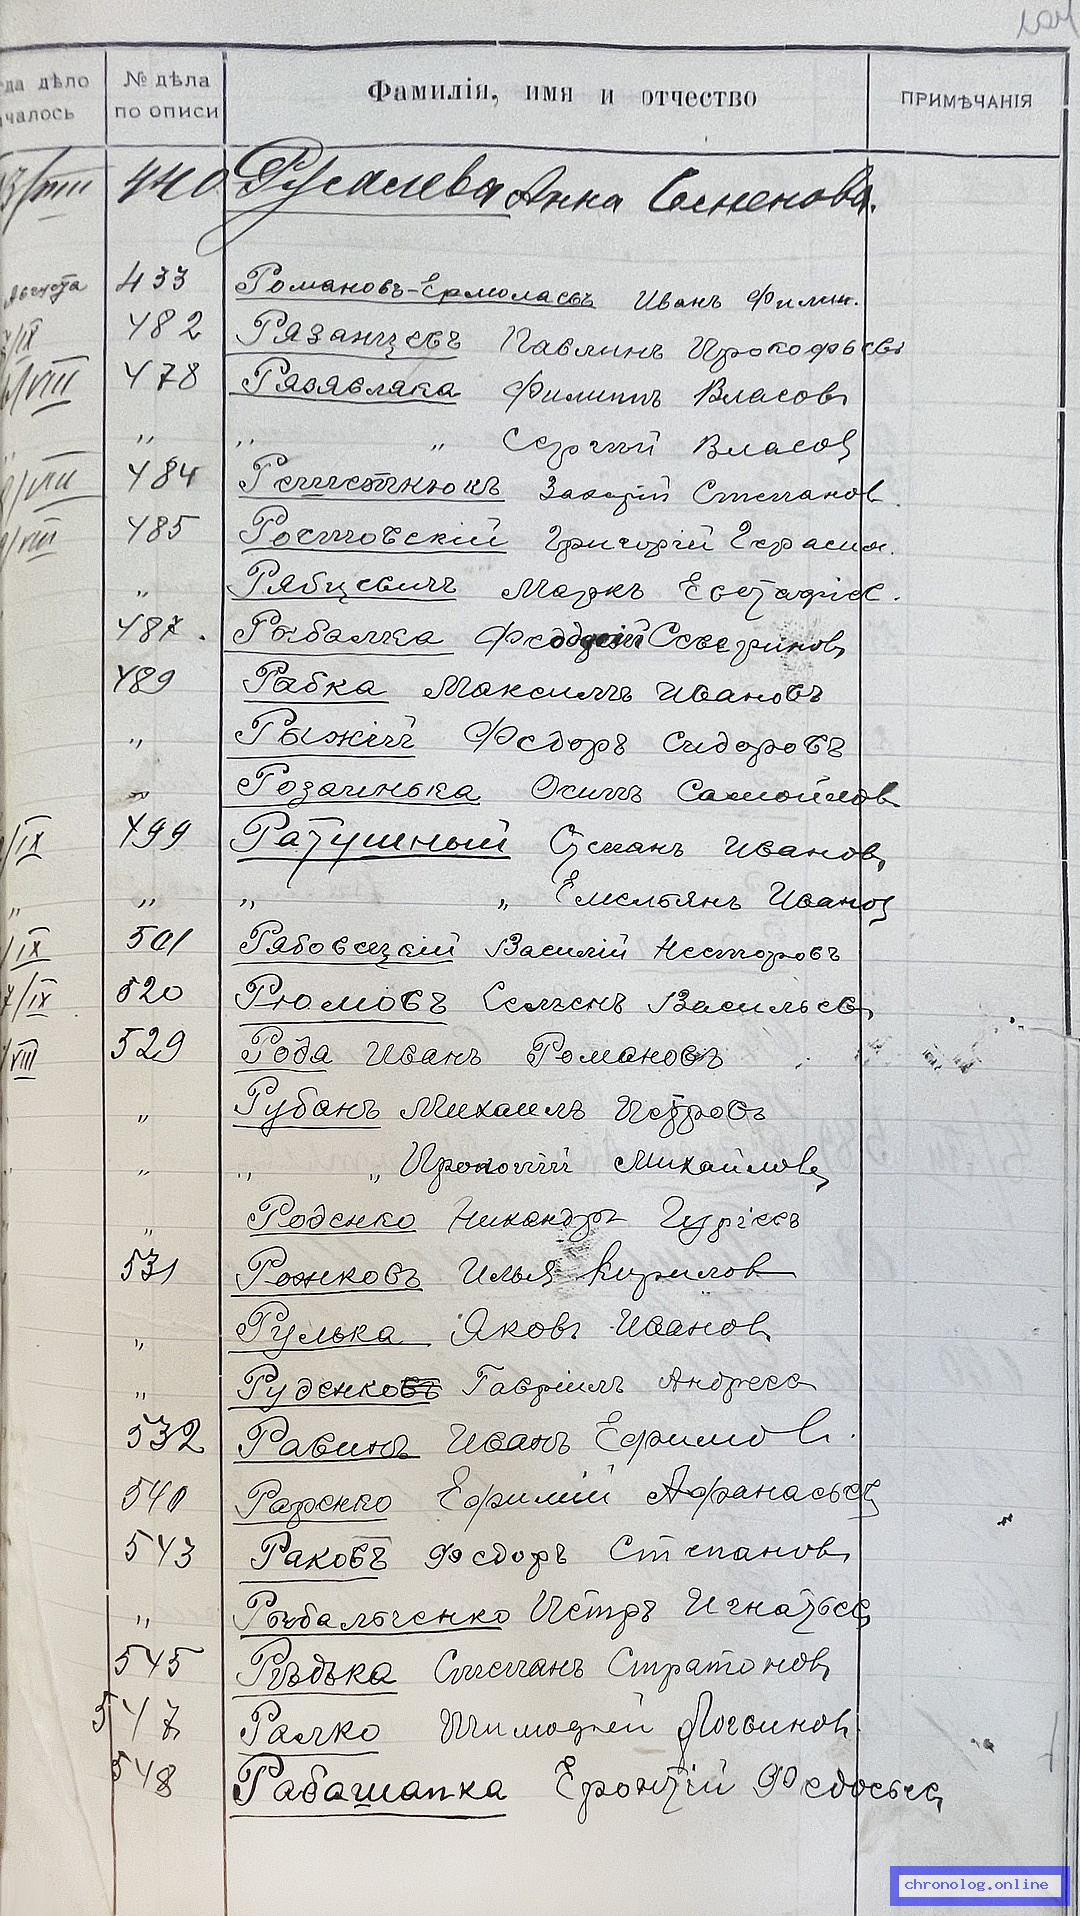 гда дѣло № дѣла Фамилія, имя и отчество ПРИМѢЧАНІЯ
чалось по описи
/VIII 440 Русалева Анна Семенова.
августа 433 Романовъ-Ермолаевъ Иванъ Филип.
/IX 482 Рязанцевъ Павлинъ Прокофьевъ
/VIII 478 Филиппъ Власовъ
„ „ „ Сергѣй Власов
/VIII 484 Решетнюкъ Захарій Степанов.
/VIII 485 Ростовскій Григорій Герасим.
„ Рябцевичъ Маркъ Евстафіев.
487. Рыбалка Северинов
489 Рабка Максимъ Ивановъ
„ Рыжій Федоръ Сидоровъ
„ Розачинька Осипъ Самойлов
/IX 499 Ратушный Степанъ Иванов
„ „ „ „ Емельянъ Иванов
/IX 501 Василій Несторовъ
7/IX 520 Рюмовъ Семенъ Васильев
/VIII 529 Рода Иванъ Романовъ
„ Рубанъ Михаилъ Петровъ
„ „ „ Прокопій Михайлов
„ Роденко Никандръ Гурьевъ
531 Рожковъ Илья Кирилов
„ Рулька Яковъ Иванов
„ Руденковъ Гавріилъ Андреев
532 Равинъ Иванъ Ефимов.
540 Ефимій Афанасьев
543 Раковъ Федоръ Степанов
„ Рыбальченко Петръ Игнатьев
545 Рѣдька Степанъ Стратонов
547 Ралко Тимофей Логвинов.
548 Рабашапка Еронтій Федосьев
chronolog.online